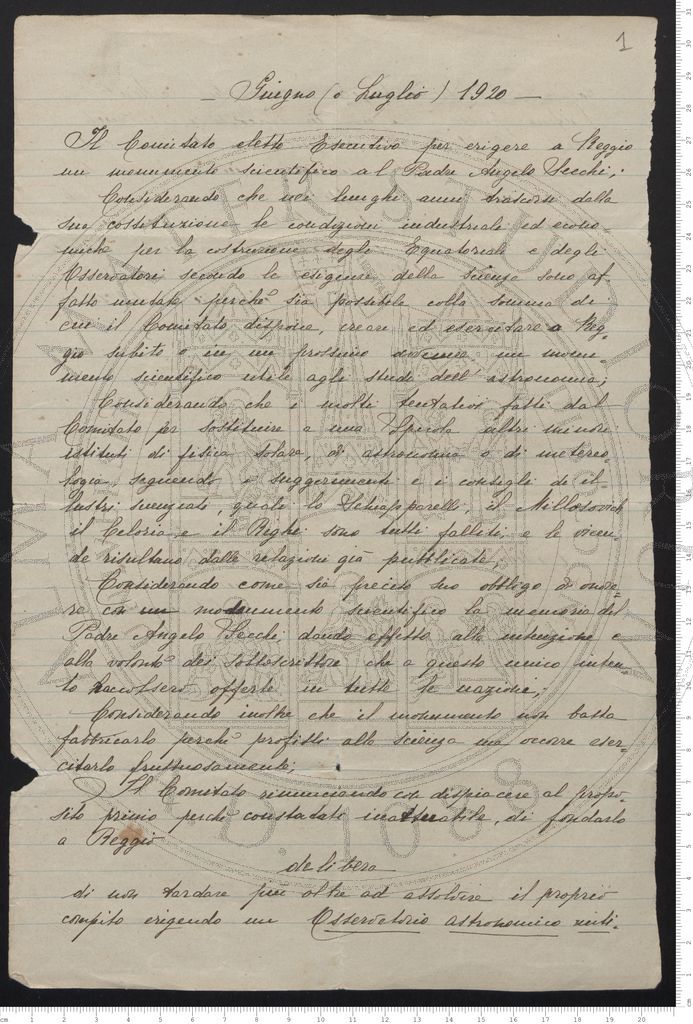 1
— Giugno (o Luglio) 1920 —
Il Comitato eletto Esecutivo per erigere a Reggio
un monumento scientifico al Padre Angelo Secchi;
Considerando che nei lunghi anni trascorsi dalla
sua costituzione le condizioni industriali ed econo-
miche per la costruzione degli Equatoriali e degli
Osservatori secondo le esigenze della scienza sono af-
fatto mutate perchè sia possibile colla somma di
cui il Comitato dispone, creare ed esercitare a Reg-
gio subito o in un prossimo avvenire un monu-
mento scientifico utile agli studi dell'astronomia;
Considerando che i molti tentativi fatti dal
Comitato per sostituire a una Specola altri minori
istituti di fisica solare, di astronomia o di meteoro-
logia, seguendo i suggerimenti e i consigli di il-
lustri scienziati, quali lo Schiapparelli, il Millosovich
il Celoria e il Righi sono tutti falliti, e le vicen-
de risultano dalle relazioni già pubblicate;
Considerando come sia preciso suo obbligo di onora-
re con un monumento scientifico la memoria del
Padre Angelo Secchi dando effetto alla intenzione e
alla volontà dei sottoscrittori che a questo unico inten-
to raccolsero offerte in tutte le nazioni;
Considerando inoltre che il monumento non basta
fabbricarlo perchè profitti alla scienza ma occorre eser-
citarlo fruttuosamente:
Il Comitato rinunciando con dispiacere al propo-
sito primo perchè constatati inattuabile, di fondarlo
a Reggio
delibera
di non tardare più oltre ad assolvere il proprio
compito erigendo un Osservatorio astronomico